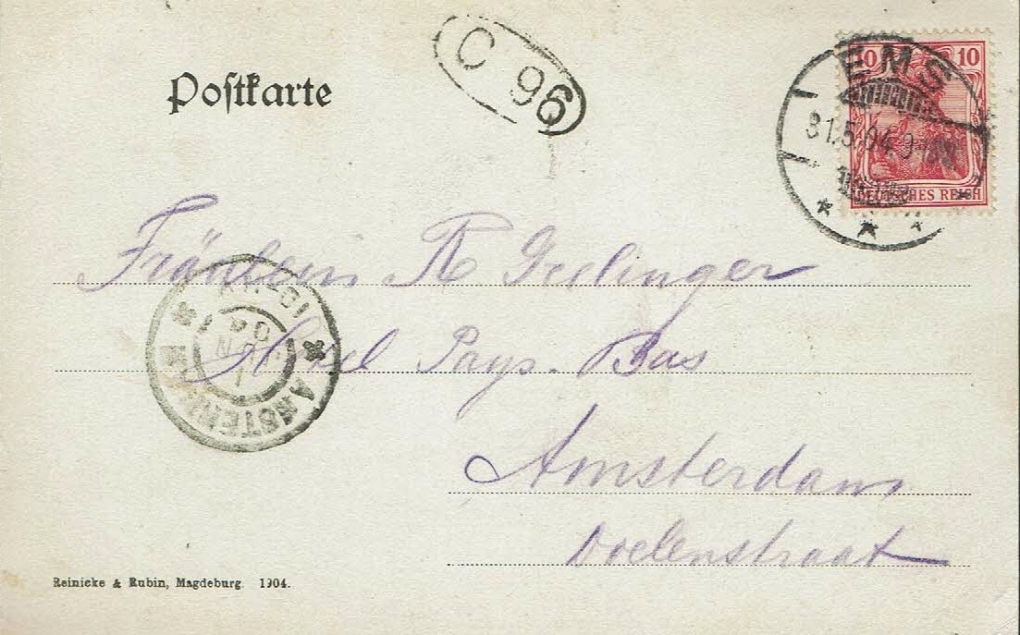 Postkarte
C 96
10 10
EMS
31.5.04.9
DEUTSCHES REICH
Fräulein R Geelinger
Hotel Pays-Bas
Amsterdam
Doelenstraat
AMSTERDAM
Reinicke & Rubin, Magdeburg. 1904.